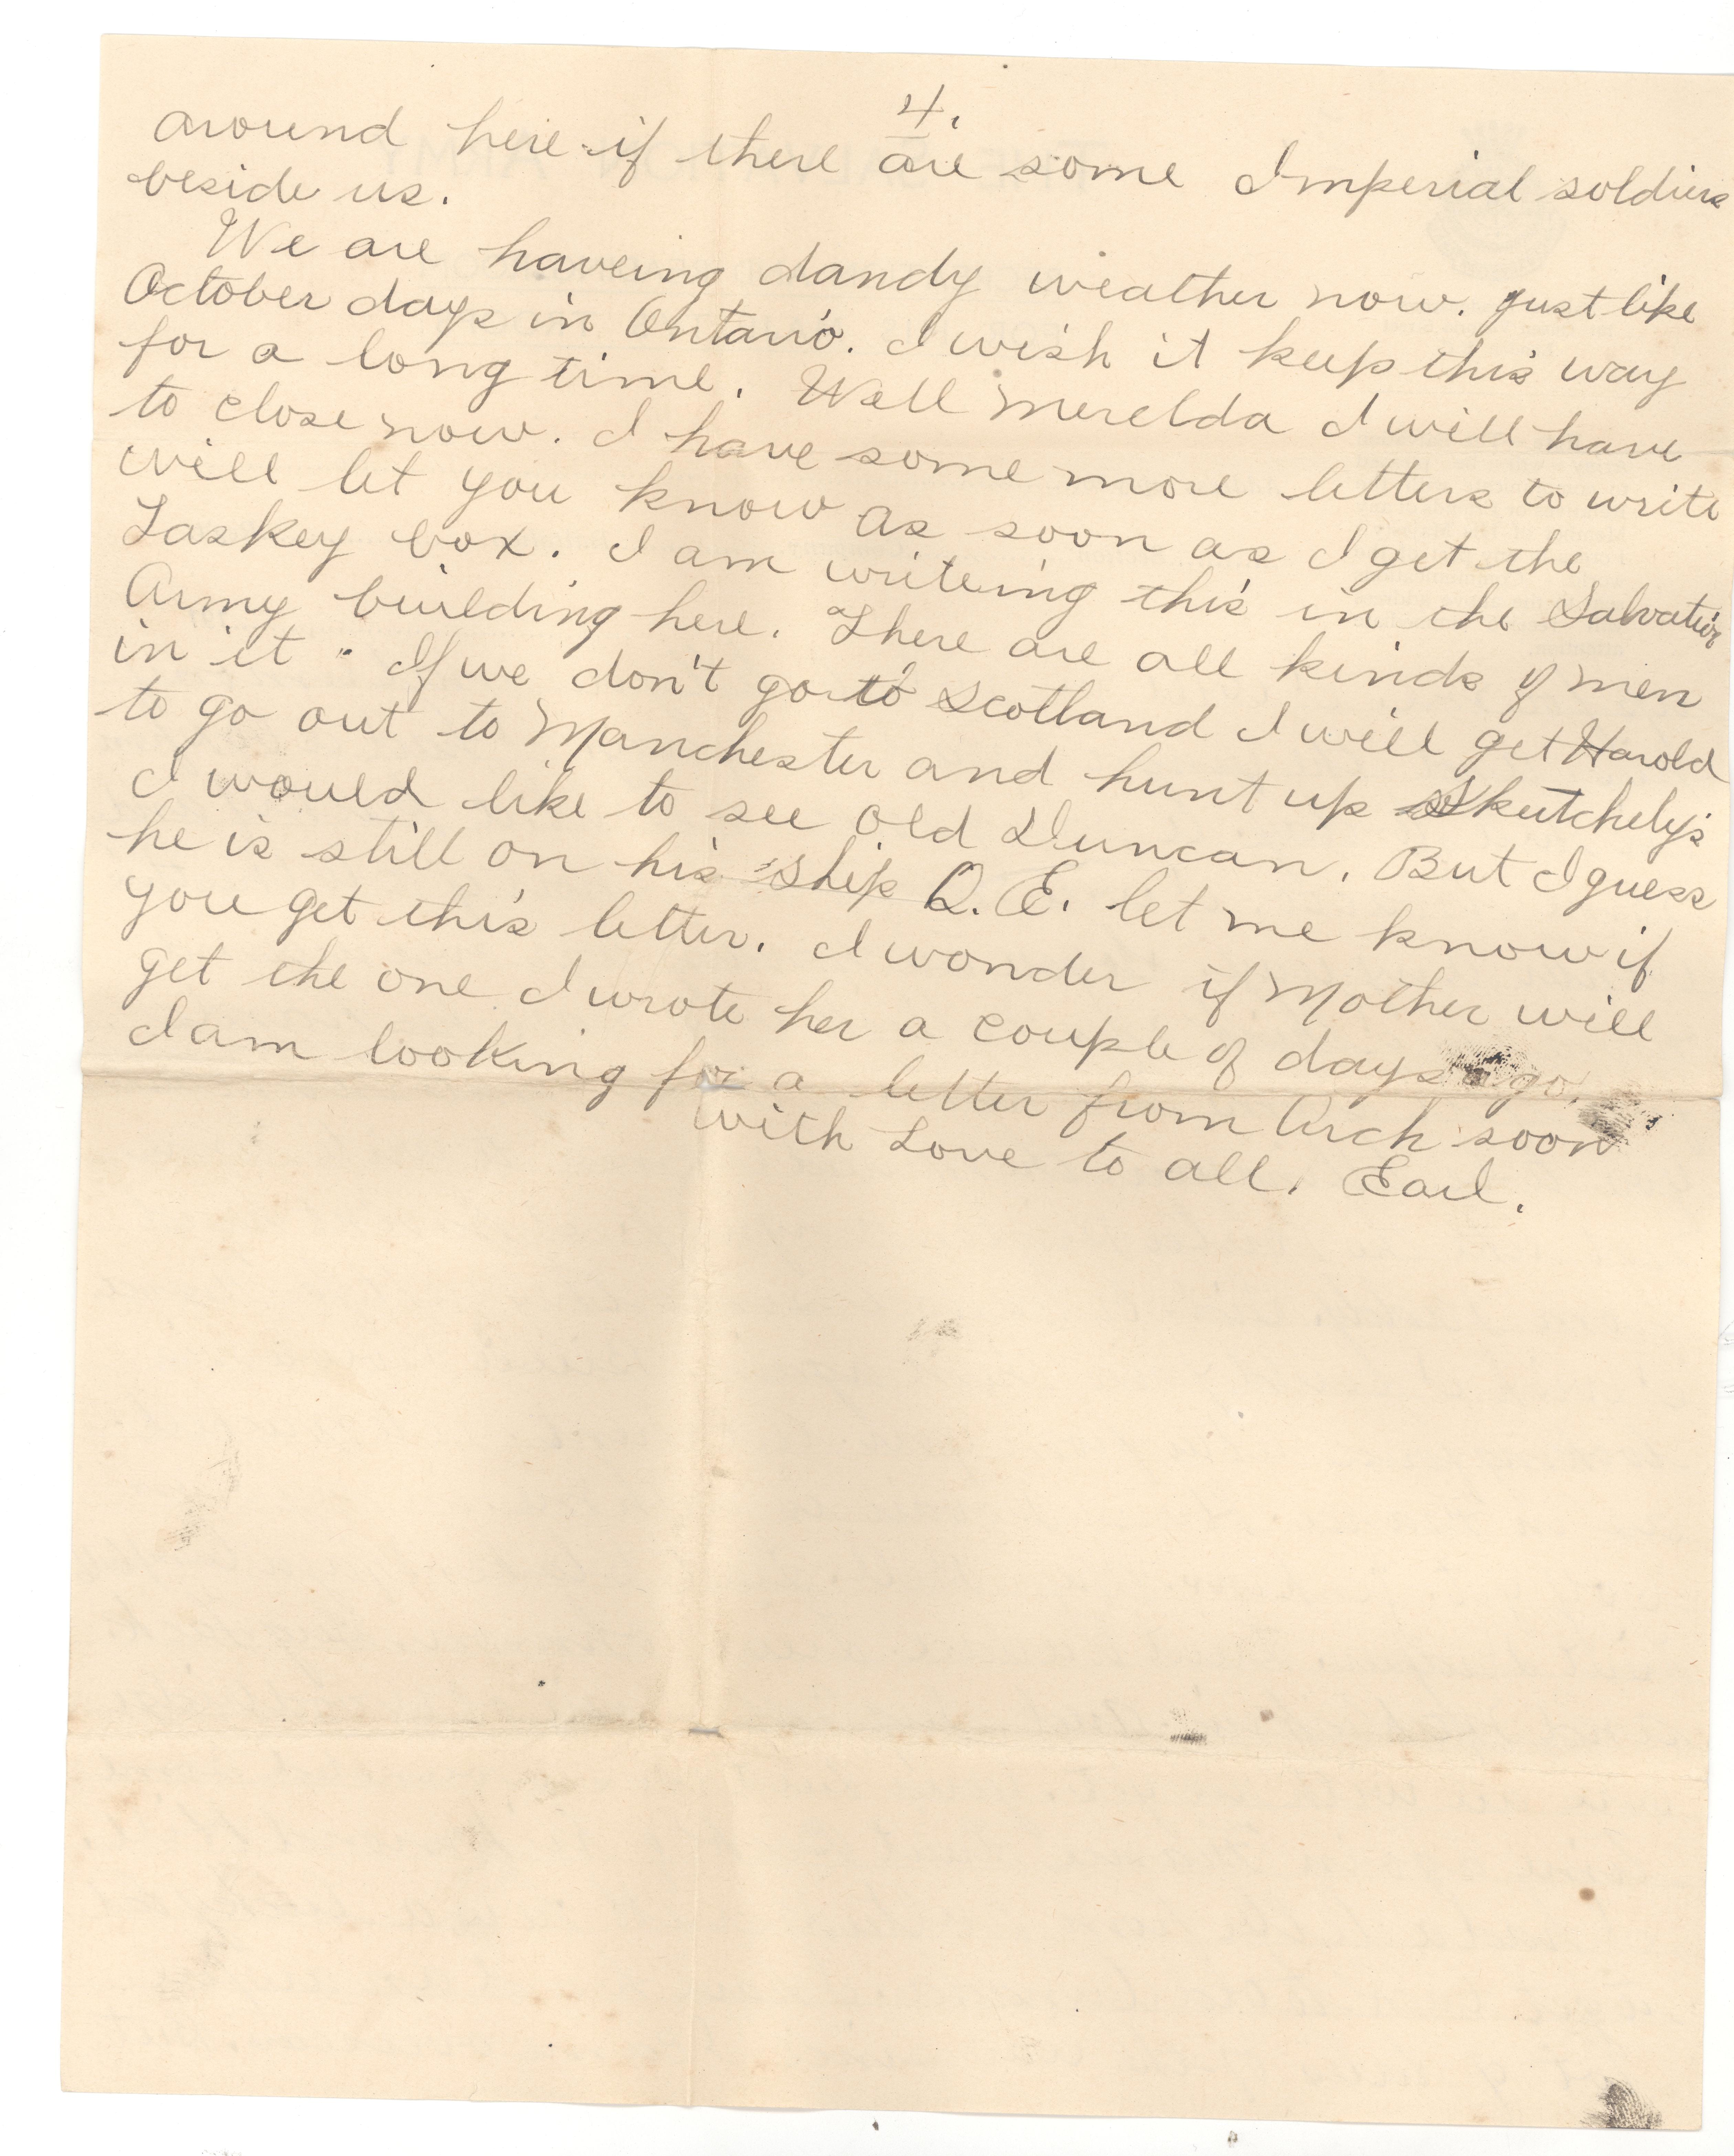 4.
around here if there are some Imperial soldiers
beside us.
We are haveing dandy weather now. just like
October days in Ontario. I wish it keeps this way
for a long time. Well Merelda I will have
to close now. I have some more letters to write
will let you know as soon as I get the
Laskey box. I am writeing this in the Salvation
Army building here. There are all kinds of men
in it. If we don't go to Scotland I will get Harold
to go out to Manchester and hunt up Skutchely's
I would like to see old Duncan. But I guess
he is still on his ship Q.E. let me know if
you get this letter. I wonder if Mother will
get the one I wrote her a couple of days ago.
I am looking for a letter from Arch soon
with Love to all. Earl.